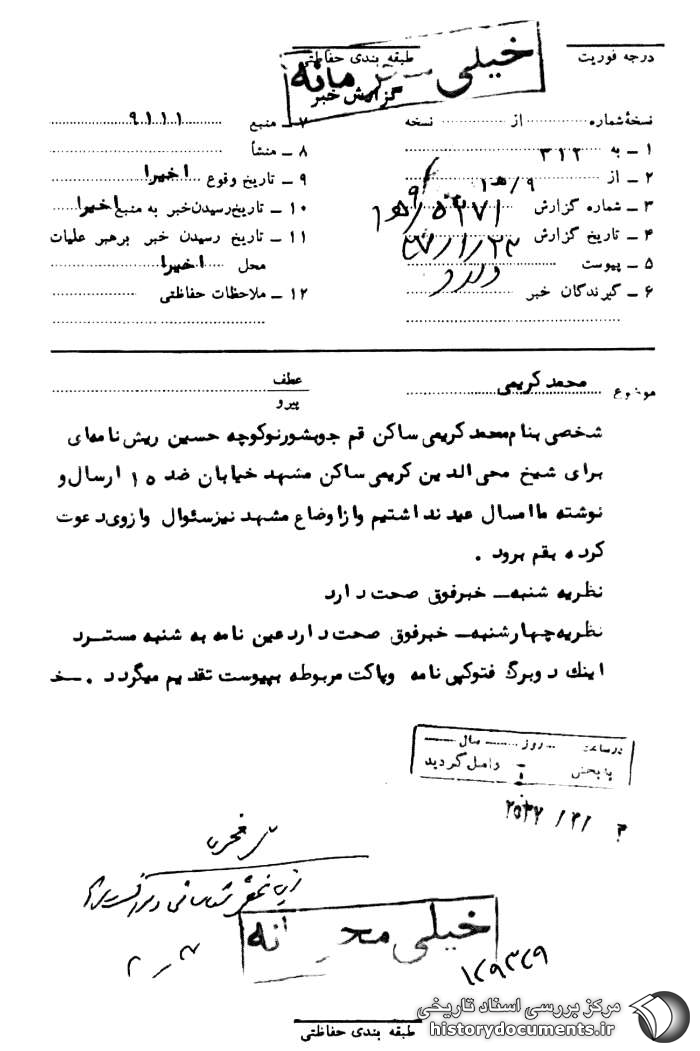 درجه فوریت
طبقه بندی حفاظتی
خیلی محرمانه
گزارش خبر
نسخهٔ شماره از نسخه
۱ ـ به ۳۱۲
۲ ـ از ۹/هـ۱
۳ ـ شماره گزارش
۴ ـ تاریخ گزارش ۳۷/۱/۲۳
۵ ـ پیوست دارد
۶ ـ گیرندگان خبر
۷ ـ منبع ۹۱۱۱
۸ ـ منشأ
۹ ـ تاریخ وقوع اخیرا
۱۰ ـ تاریخ رسیدن خبر به منبع اخیرا
۱۱ ـ تاریخ رسیدن خبر برهبر عملیات
محل اخیرا
۱۲ ـ ملاحظات حفاظتی
موضوع محمد کریمی
عطف
پیرو
شخصی بنام محمد کریمی ساکن قم جوبشور نو کوچه حسین ریش نامه‌ای
برای شیخ محی الدین کریمی ساکن مشهد خیابان ضد ۱۵ ارسال و
نوشته ما امسال عید نداشتیم و از اوضاع مشهد نیز سئوال و از وی دعوت
کرده بقم برود .
نظریه شنبه ـ خبر فوق صحت دارد
نظریه چهارشنبه ـ خبر فوق صحت دارد عین نامه به شنبه مسترد
اینک دو برگ فتوکپی نامه و پاکت مربوطه بپیوست تقدیم میگردد . ـ خ
در ساعت روز سال
با بخش واصل گردید
خیلی محرمانه
طبقه بندی حفاظتی
مرکز بررسی اسناد تاریخی
historydocuments.ir